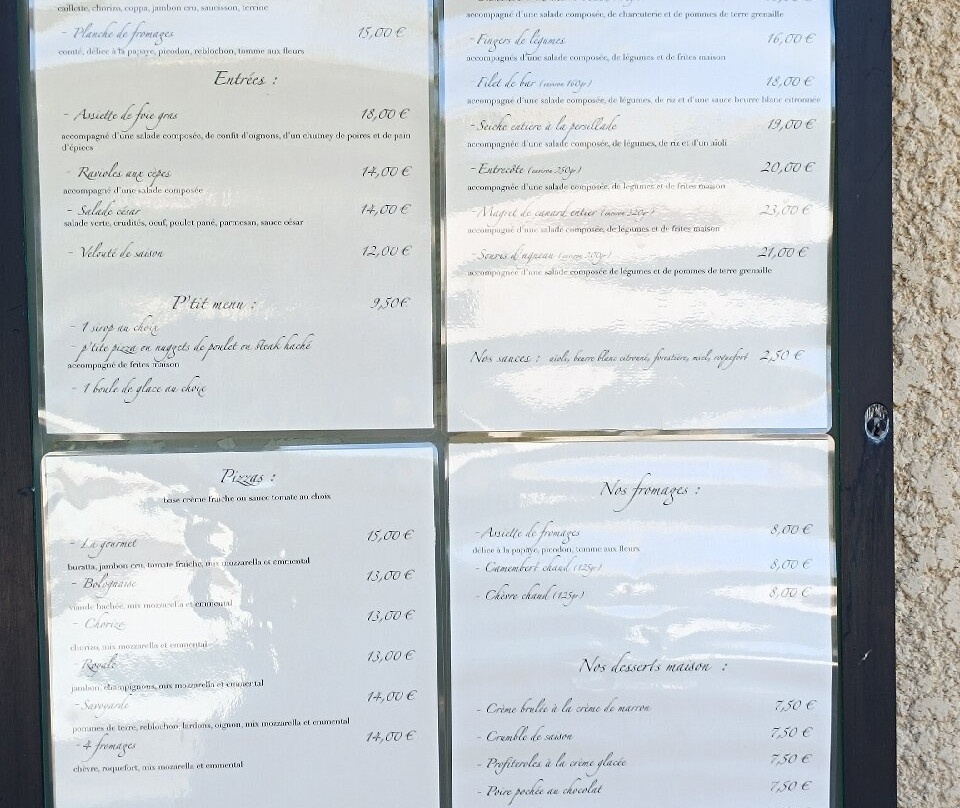 caillette, chorizo, coppa, jambon cru, saucisson, terrine
- Planche de fromages 15,00 €
comté, délice à la papaye, picodon, reblochon, tomme aux fleurs
Entrées :
- Assiette de foie gras 18,00 €
accompagné d'une salade composée, de confit d'oignons, d'un chutney de poires et de pain
d'épices
- Ravioles aux cèpes 14,00 €
accompagné d'une salade composée
- Salade césar 14,00 €
salade verte, crudités, oeuf, poulet pané, parmesan, sauce césar
- Velouté de saison 12,00 €
P'tit menu : 9,50€
- 1 sirop au choix
- p'tite pizza ou nuggets de poulet ou steak haché
accompagné de frites maison
- 1 boule de glace au choix
accompagnée d'une salade composée, de charcuterie et de pommes de terre grenaille
- Fingers de légumes 16,00 €
accompagnés d'une salade composée, de légumes et de frites maison
- Filet de bar (environ 160gr) 18,00 €
accompagné d'une salade composée, de légumes, de riz et d'une sauce beurre blanc citronnée
- Seiche entière à la persillade 19,00 €
accompagnée d'une salade composée, de légumes, de riz et d'un aïoli
- Entrecôte (environ 250gr) 20,00 €
accompagnée d'une salade composée, de légumes et de frites maison
- Magret de canard entier (environ 320gr) 23,00 €
accompagné d'une salade composée, de légumes et de frites maison
- Souris d'agneau (environ 200gr) 21,00 €
accompagnée d'une salade composée de légumes et de pommes de terre grenaille
Nos sauces : aïoli, beurre blanc citronné, forestière, miel, roquefort 2,50 €
Pizzas :
base crème fraîche ou sauce tomate au choix
- La gourmet 15,00 €
buratta, jambon cru, tomate fraîche, mix mozzarella et emmental
- Bolognaise 13,00 €
viande hachée, mix mozzarella et emmental
- Chorizo 13,00 €
chorizo, mix mozzarella et emmental
- Royale 13,00 €
jambon, champignons, mix mozzarella et emmental
- Savoyarde 14,00 €
pommes de terre, reblochon, lardons, oignon, mix mozzarella et emmental
- 4 fromages 14,00 €
chèvre, roquefort, mix mozarella et emmental
Nos fromages :
- Assiette de fromages 8,00 €
délice à la papaye, picodon, tomme aux fleurs
- Camembert chaud (125gr) 8,00 €
- Chèvre chaud (125gr) 8,00 €
Nos desserts maison :
- Crème brulée à la crème de marron 7,50 €
- Crumble de saison 7,50 €
- Profiteroles à la crème glacée 7,50 €
- Poire pochée au chocolat 7,50 €